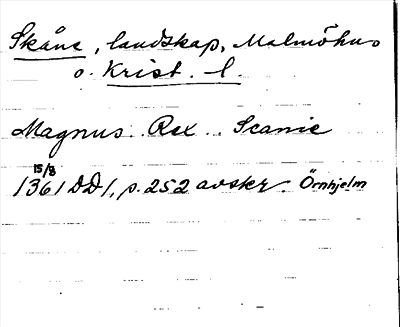 Skåne, landskap, Malmöhus
o. Krist. l.
Magnus Rex Scanie
15/8
1361 DD 1, p. 252 avskr. Örnhjelm